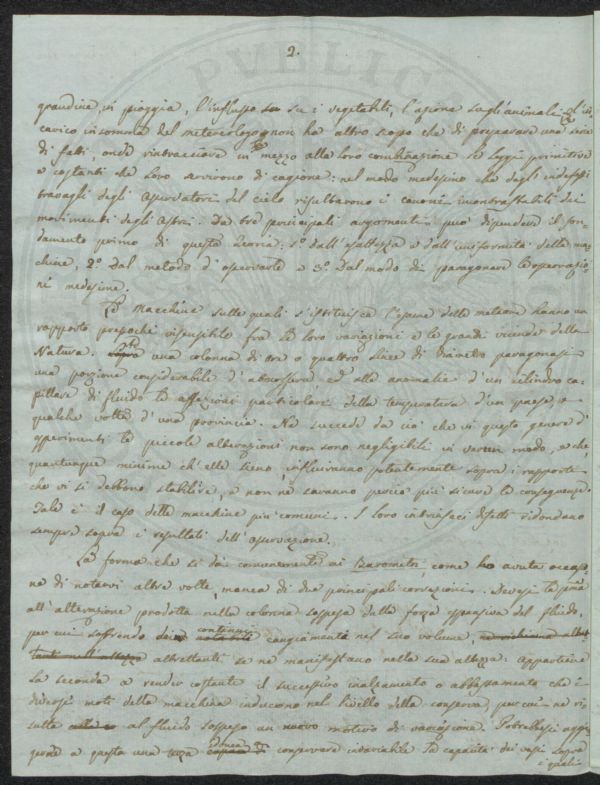 2.
grandine, in pioggia, l'influsso su i vegetabili, l'azione sugli animali. L'in-
carico insomma del meteorologo non ha altro scopo che di preparare una serie
di fatti, onde rintracciare in mezzo alla loro combinazione le leggi primitive
e costanti che loro servirono di cagione: nel modo medesimo che dagli indefessi
travagli degli osservatori del cielo risultarono i canoni incontrastabili dei
movimenti degli Astri. Da tre principali argomenti può dipendere il fon-
damento primo di questa Teoria: 1.º dall'esattezza e dall'uniformità delle mac-
chine, 2.º dal metodo d'osservarle e 3.º dal modo di paragonare le osservazio-
ni medesime.
Le Macchine sulle quali s'istituisce l'esame delle meteore hanno un
rapporto pressochè insensibile fra le loro variazioni e le grandi vicende della
Natura. una colonna di tre o quattro linee di diametro paragonasi
una porzione considerabile d'atmosfera ed alle anomalie d'un cilindro ca-
pillare di fluido le affezioni particolari della temperatura d'un paese, e
qualche volta d'una provincia. Ne succede da ciò che in questo genere d'
esperimenti le piccole alterazioni non sono negligibili in verun modo, e che
quantunque minime ch'elle sieno influiranno potentemente sopra i rapporti
che vi si debbono stabilire, e non ne saranno perciò più sicure le conseguenze.
Tale è il caso delle macchine più comuni. I loro intrinseci difetti ridondano
sempre sopra i resultati dell'osservazione.
La forma che si dà comunemente ai Barometri, come ho avuta occasio-
ne di notarvi altre volte, manca di due principali correzioni. Devesi la prima
all'alterazione prodotta nella colonna sospesa dalla forza espansiva del fluido,
per cui soffrendo continui cangiamenti nel suo volume,
altrettanti se ne manifestano nella sua altezza: appartiene
la seconda a render costante il successivo inalzamento o abbassamento che i
diversi moti della macchina inducono nel livello della conserva, per cui ne ri-
sulta al fluido sospeso un nuovo motivo di variazione. Potrebbesi aggiu-
gnere a questa una terza conservare invariabile la capacità dei vasi sopra
i quali